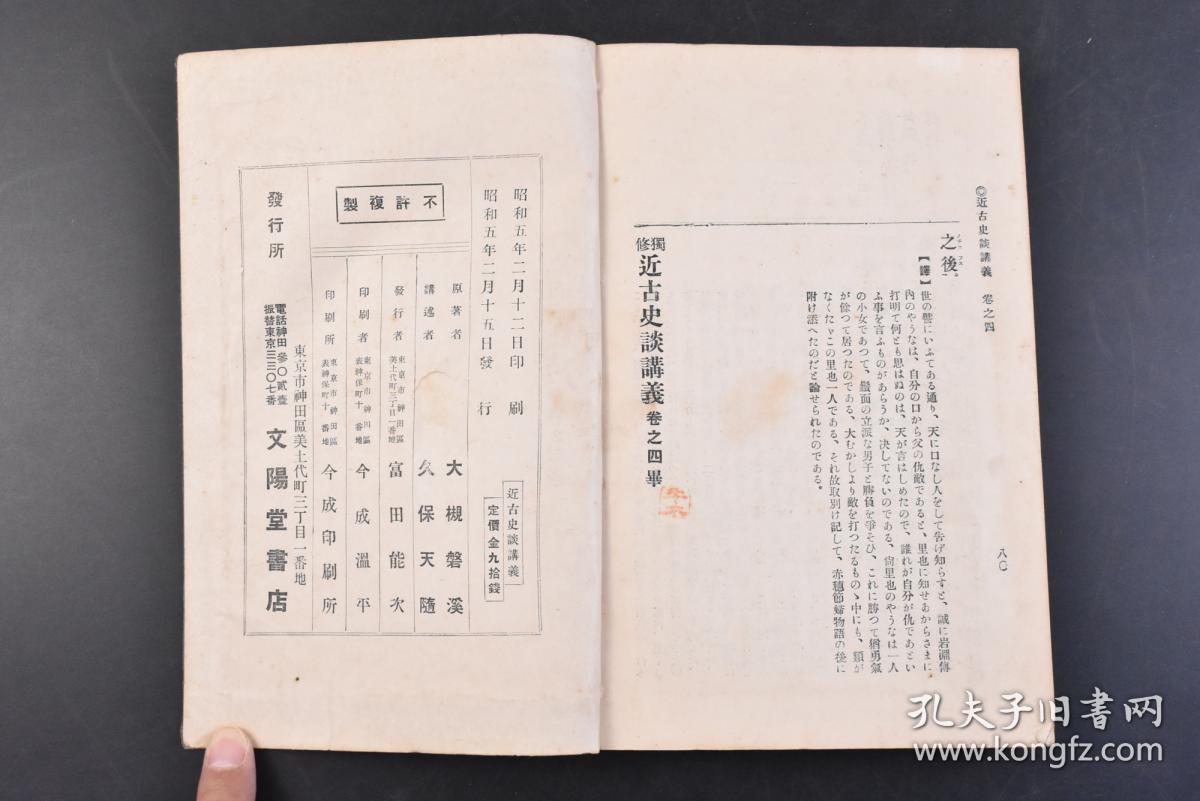 ◎近古史談講義　卷之四
八〇
之後。
【譯】世の譬にいふてある通り、天に口なし人をして告げ知らすと、誠に岩淵傳
内のやうなは、自分の口から父の仇敵であると、里也に知せあからさまに
打明て何とも思はぬのは、天が言はしめたので、誰れが自分が仇であとい
ふ事を言ふものがあらうか、决してないのである、尙里也のやうなは一人
の小女であつて、鬚面の立派な男子と勝負を爭そひ、これに勝つて猶勇氣
が餘つて居つたのである、大むかしより敵を打つたるものゝ中にも、類が
なくたゞこの里也一人である、それ故取別け記して、赤穗節婦物語の後に
附け添へたのだと論せられたのである。
獨修 近古史談講義 卷之四 畢
昭和五年二月十二日印刷
昭和五年二月十五日發行
近古史談講義
定價金九拾錢
不許複製
原著者　大槻磐溪
講述者　久保天隨
發行者　東京市神田區美土代町三丁目一番地　富田能次
印刷者　東京市神田區表神保町十番地　今成溫平
印刷所　東京市神田區表神保町十番地　今成印刷所
發行所
東京市神田區美土代町三丁目一番地
文陽堂書店
電話神田參〇貳壹
振替東京三三〇七番
孔夫子旧书网
www.kongfz.com